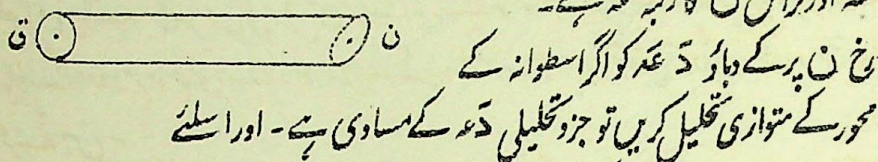 ق ن
رخ ن پر کے دباؤ دَ عَہ کو اگر اسطوانہ کے
محور کے متوازی تحلیل کریں تو جزو تحلیلی دَعہ کے مساوی ہے - اور اسلئے